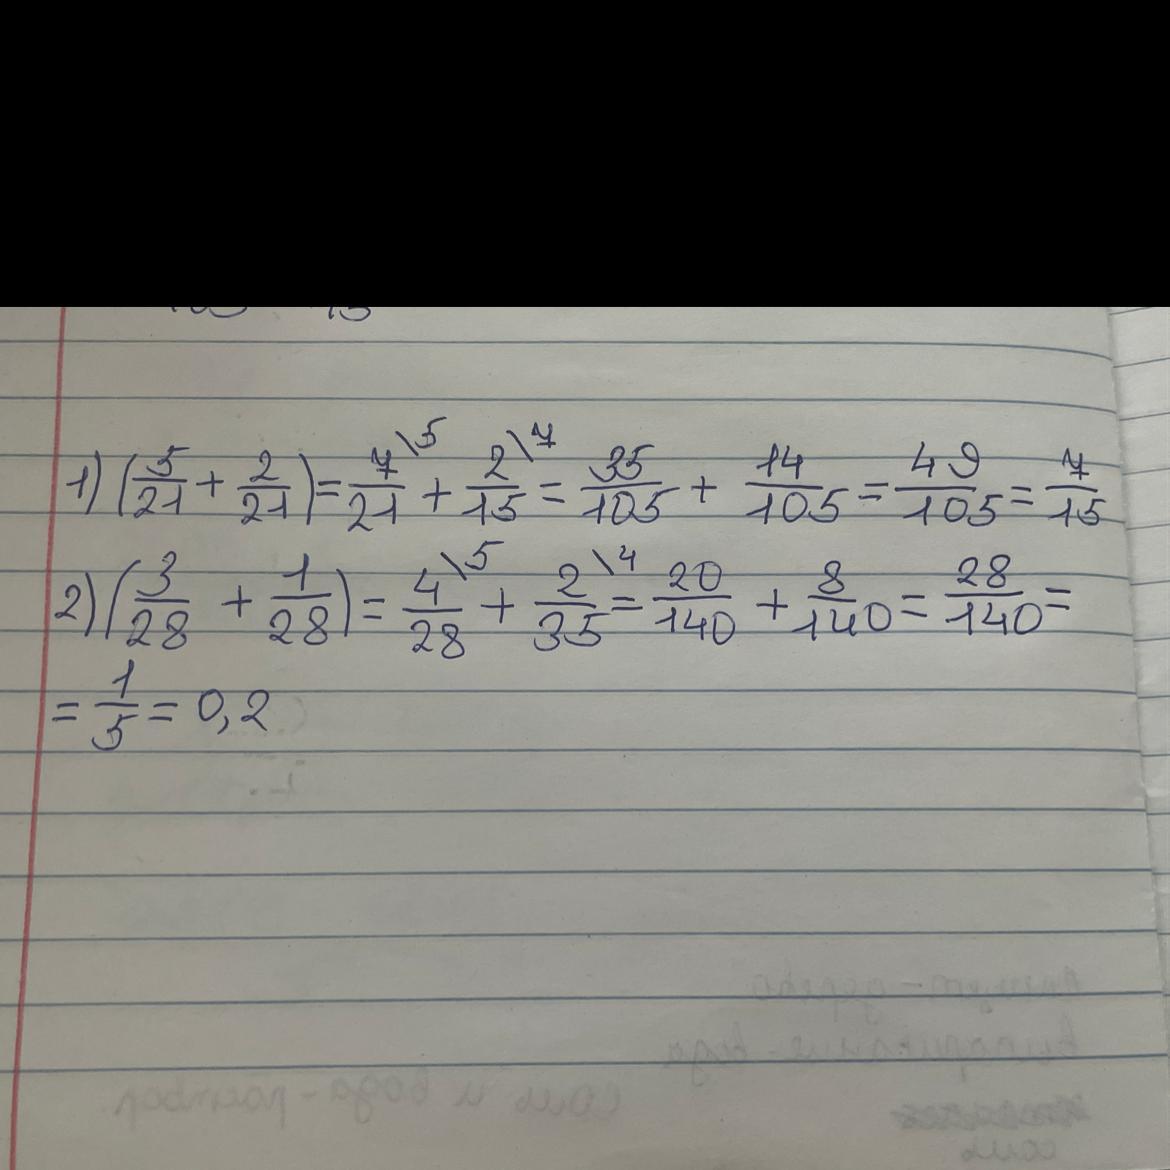 1) (5/21 + 2/21) = 7/21 \5 + 2/15 \7 = 35/105 + 14/105 = 49/105 = 7/15
2) (3/28 + 1/28) = 4/28 \5 + 2/35 \4 = 20/140 + 8/140 = 28/140 =
= 1/5 = 0,2